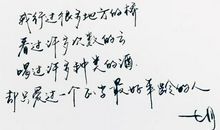 我行过很多地方的桥
看过许多次数的云
喝过许多种类的酒
却只爱过一个正当最好年龄的人